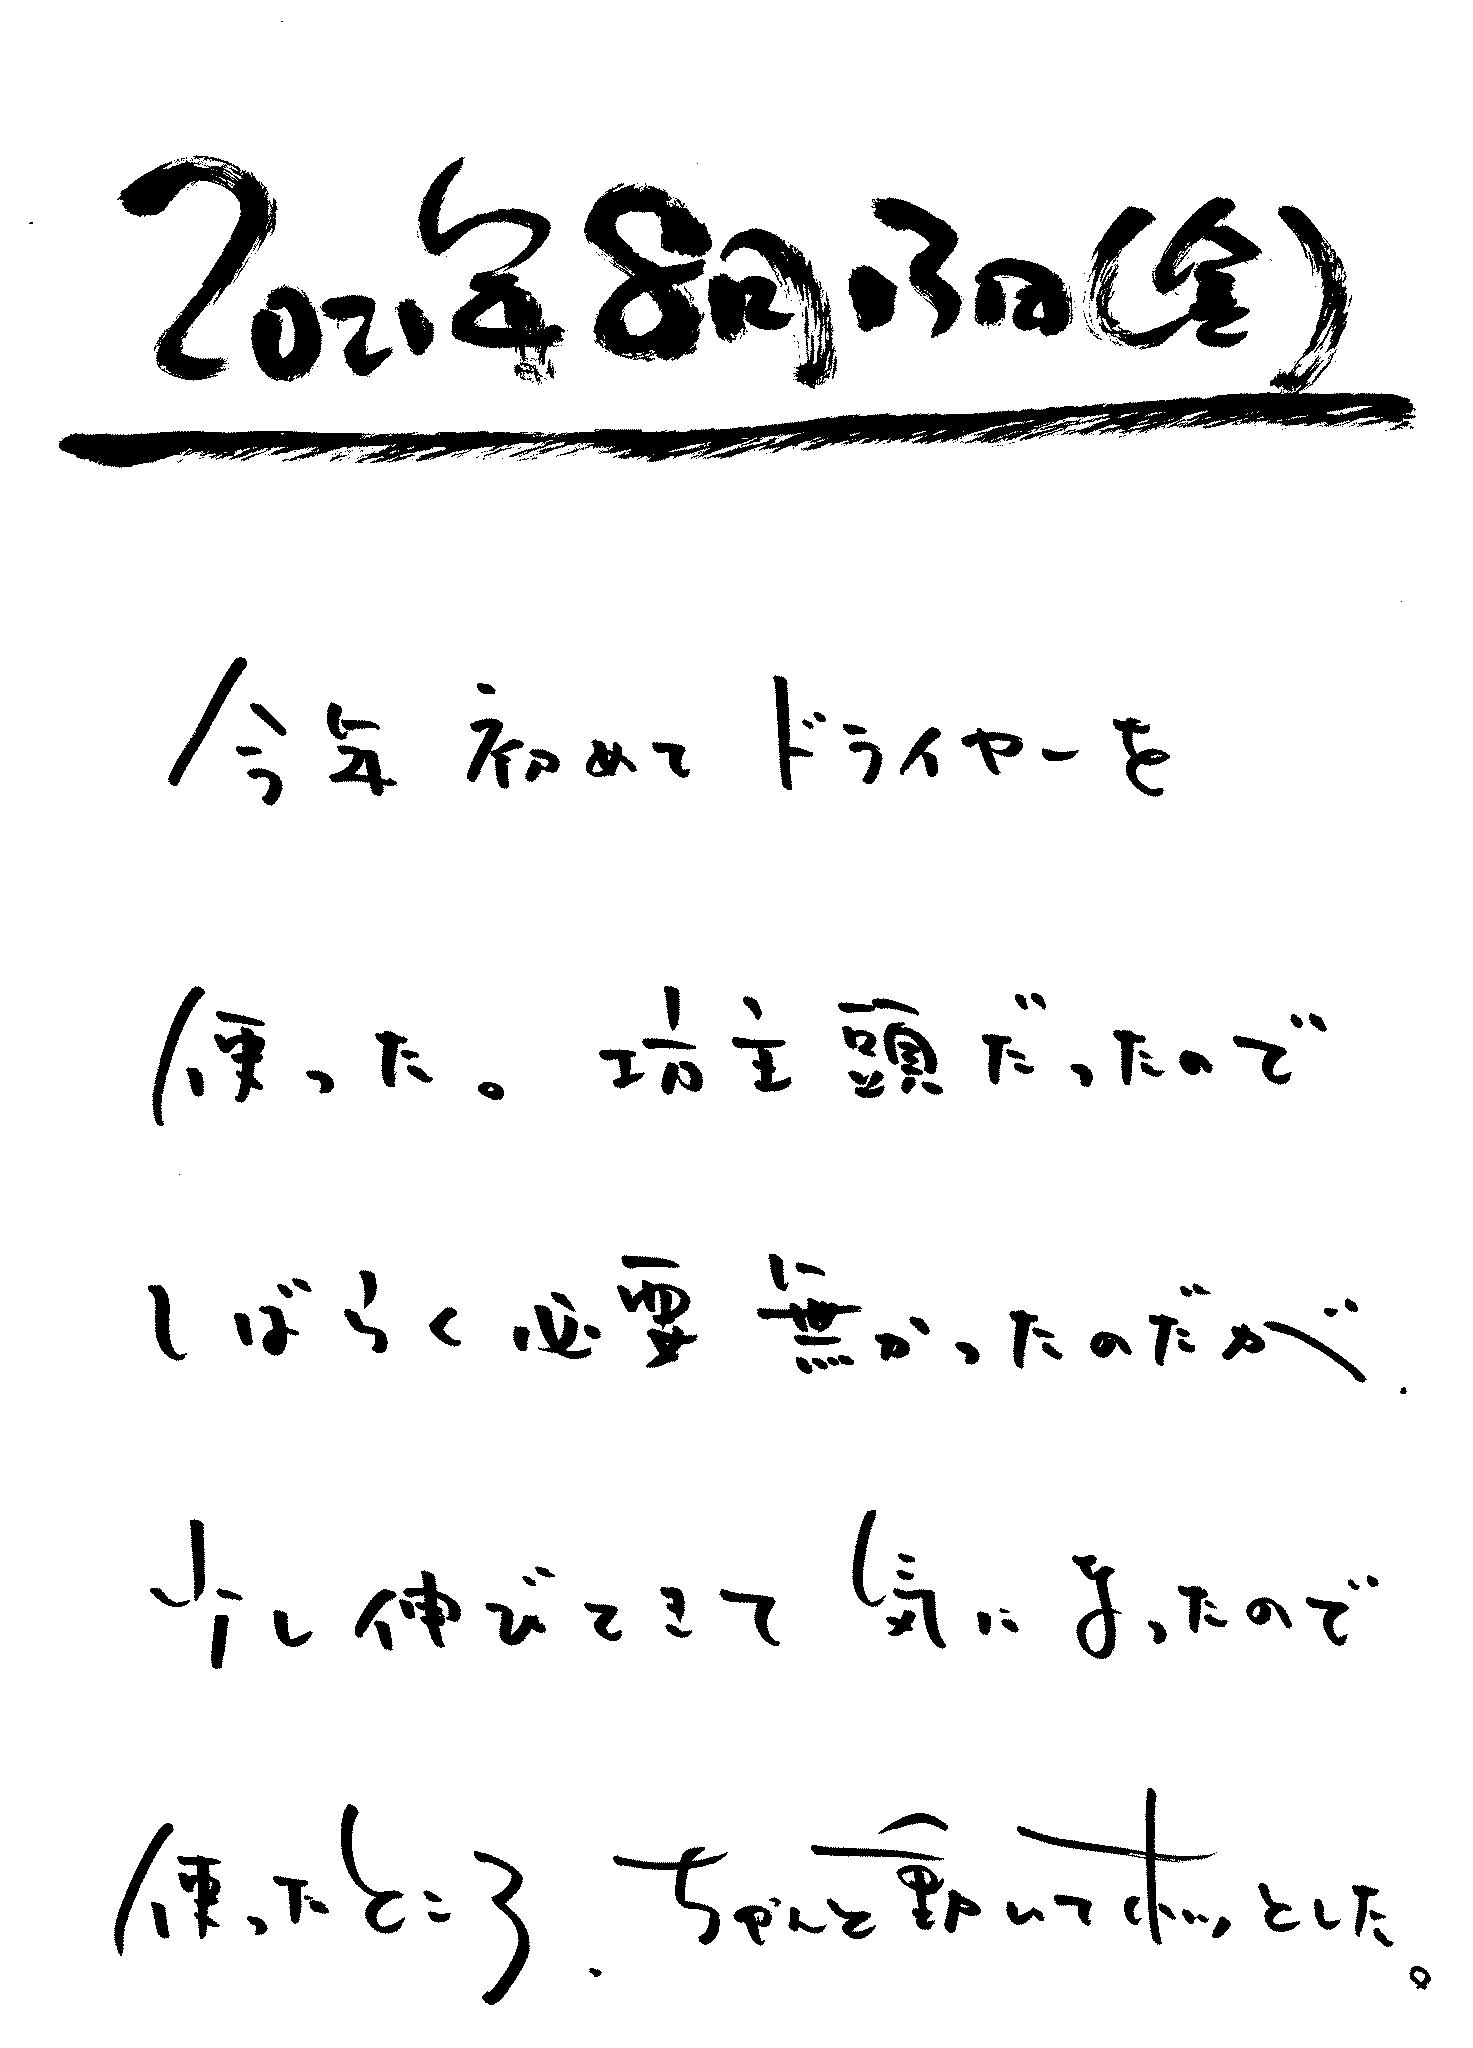 2021年8月13日(金)
今年初めてドライヤーを
使った。坊主頭だったので
しばらく必要無かったのだが、
少し伸びてきて気になったので
使ったところ、ちゃんと動いてホッとした。